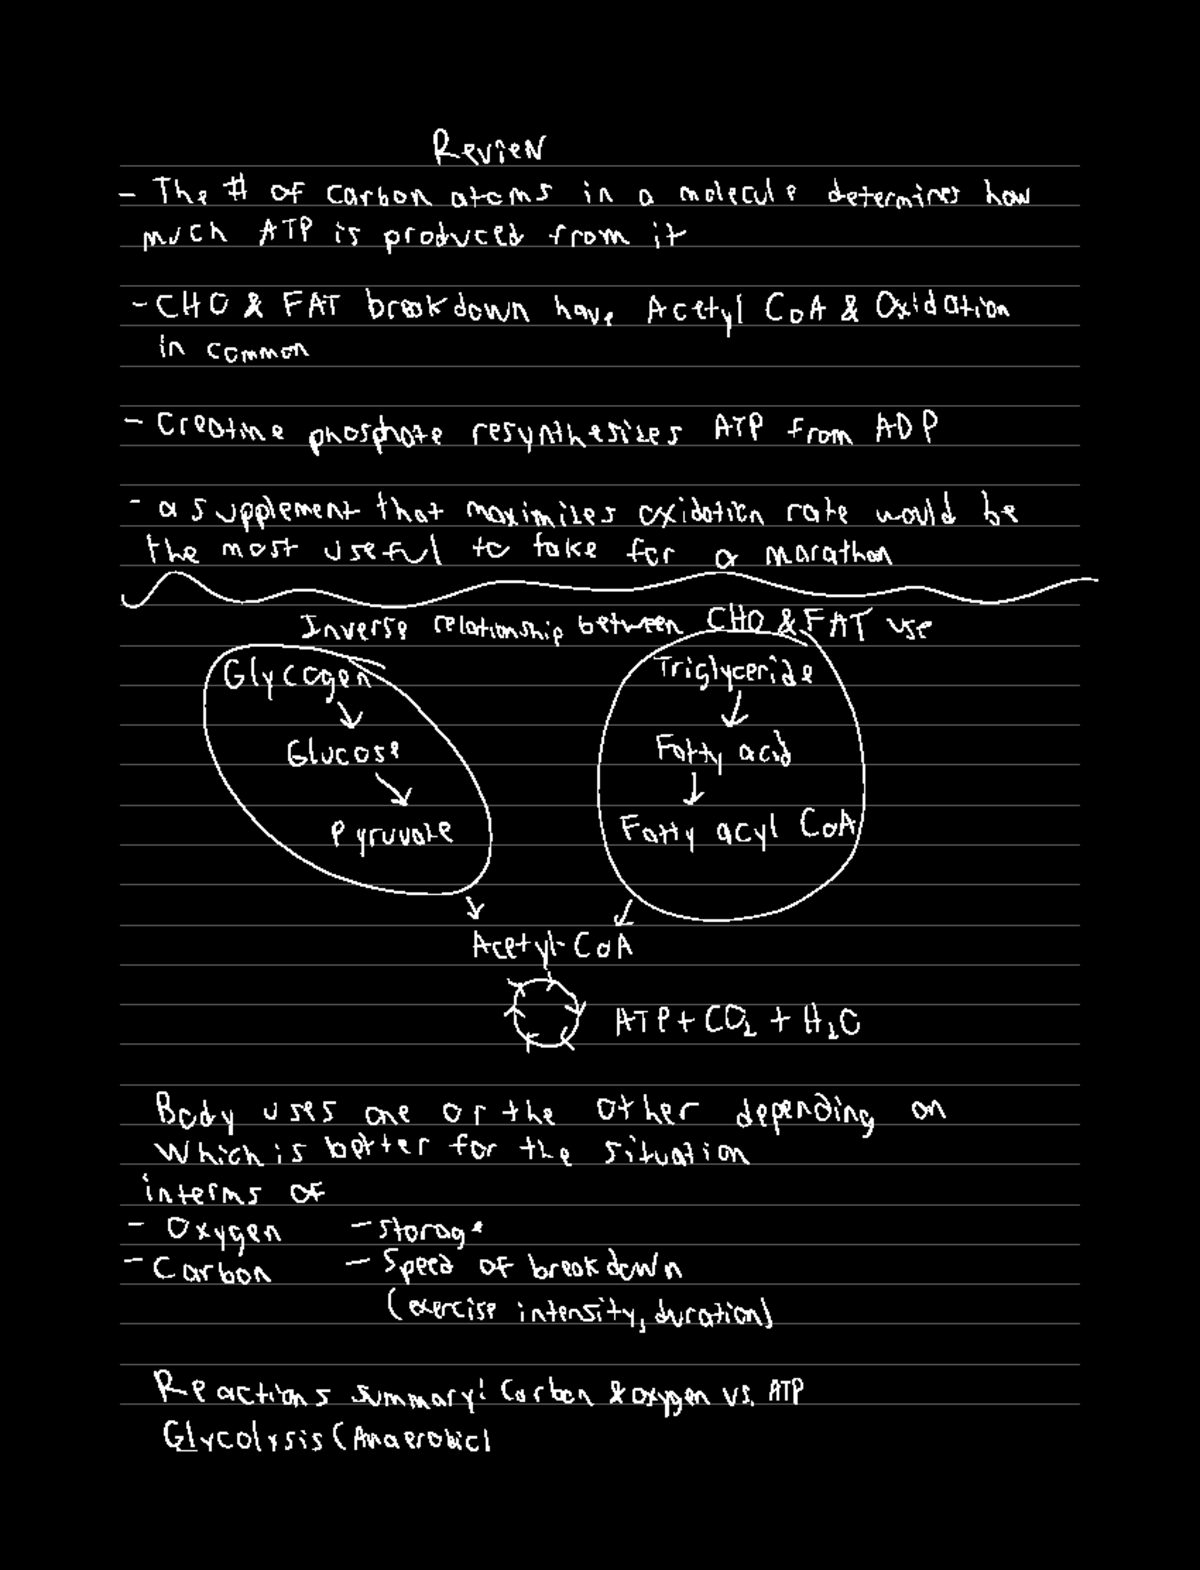 Review
- The # of carbon atoms in a molecule determines how
much ATP is produced from it
- CHO & FAT breakdown have Acetyl CoA & Oxidation
in common
- Creatine phosphate resynthesizes ATP from ADP
- a supplement that maximizes oxidation rate would be
the most useful to take for a marathon
Inverse relationship between CHO & FAT use
Glycogen
Glucose
Pyruvate
Triglyceride
Fatty acid
Fatty acyl CoA
Acetyl-CoA
ATP + CO₂ + H₂O
Body uses one or the other depending on
which is better for the situation
interms of
- Oxygen - storage
- Carbon - Speed of breakdown
(exercise intensity, duration)
Reactions summary: Carbon & oxygen vs. ATP
Glycolysis (Anaerobic)